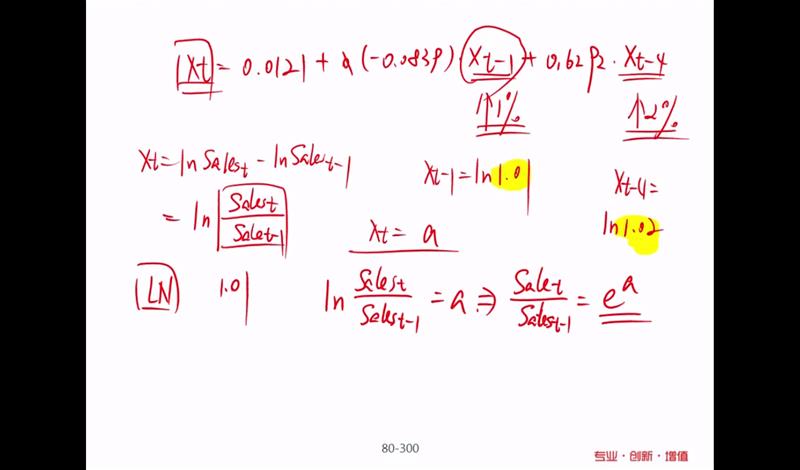 Xt = 0.0121 + (-0.0839) Xt-1 + 0.6292 · Xt-4
↑1% ↑2%
Xt = ln Salest - ln Salest-1 Xt-1 = ln 1.01 Xt-4 =
= ln Salest/Salet-1 ln 1.02
Xt = a
LN 1.01 ln Salest/Salest-1 = a ⇒ Salet/Salest-1 = e^a
80-300
专业·创新·增值